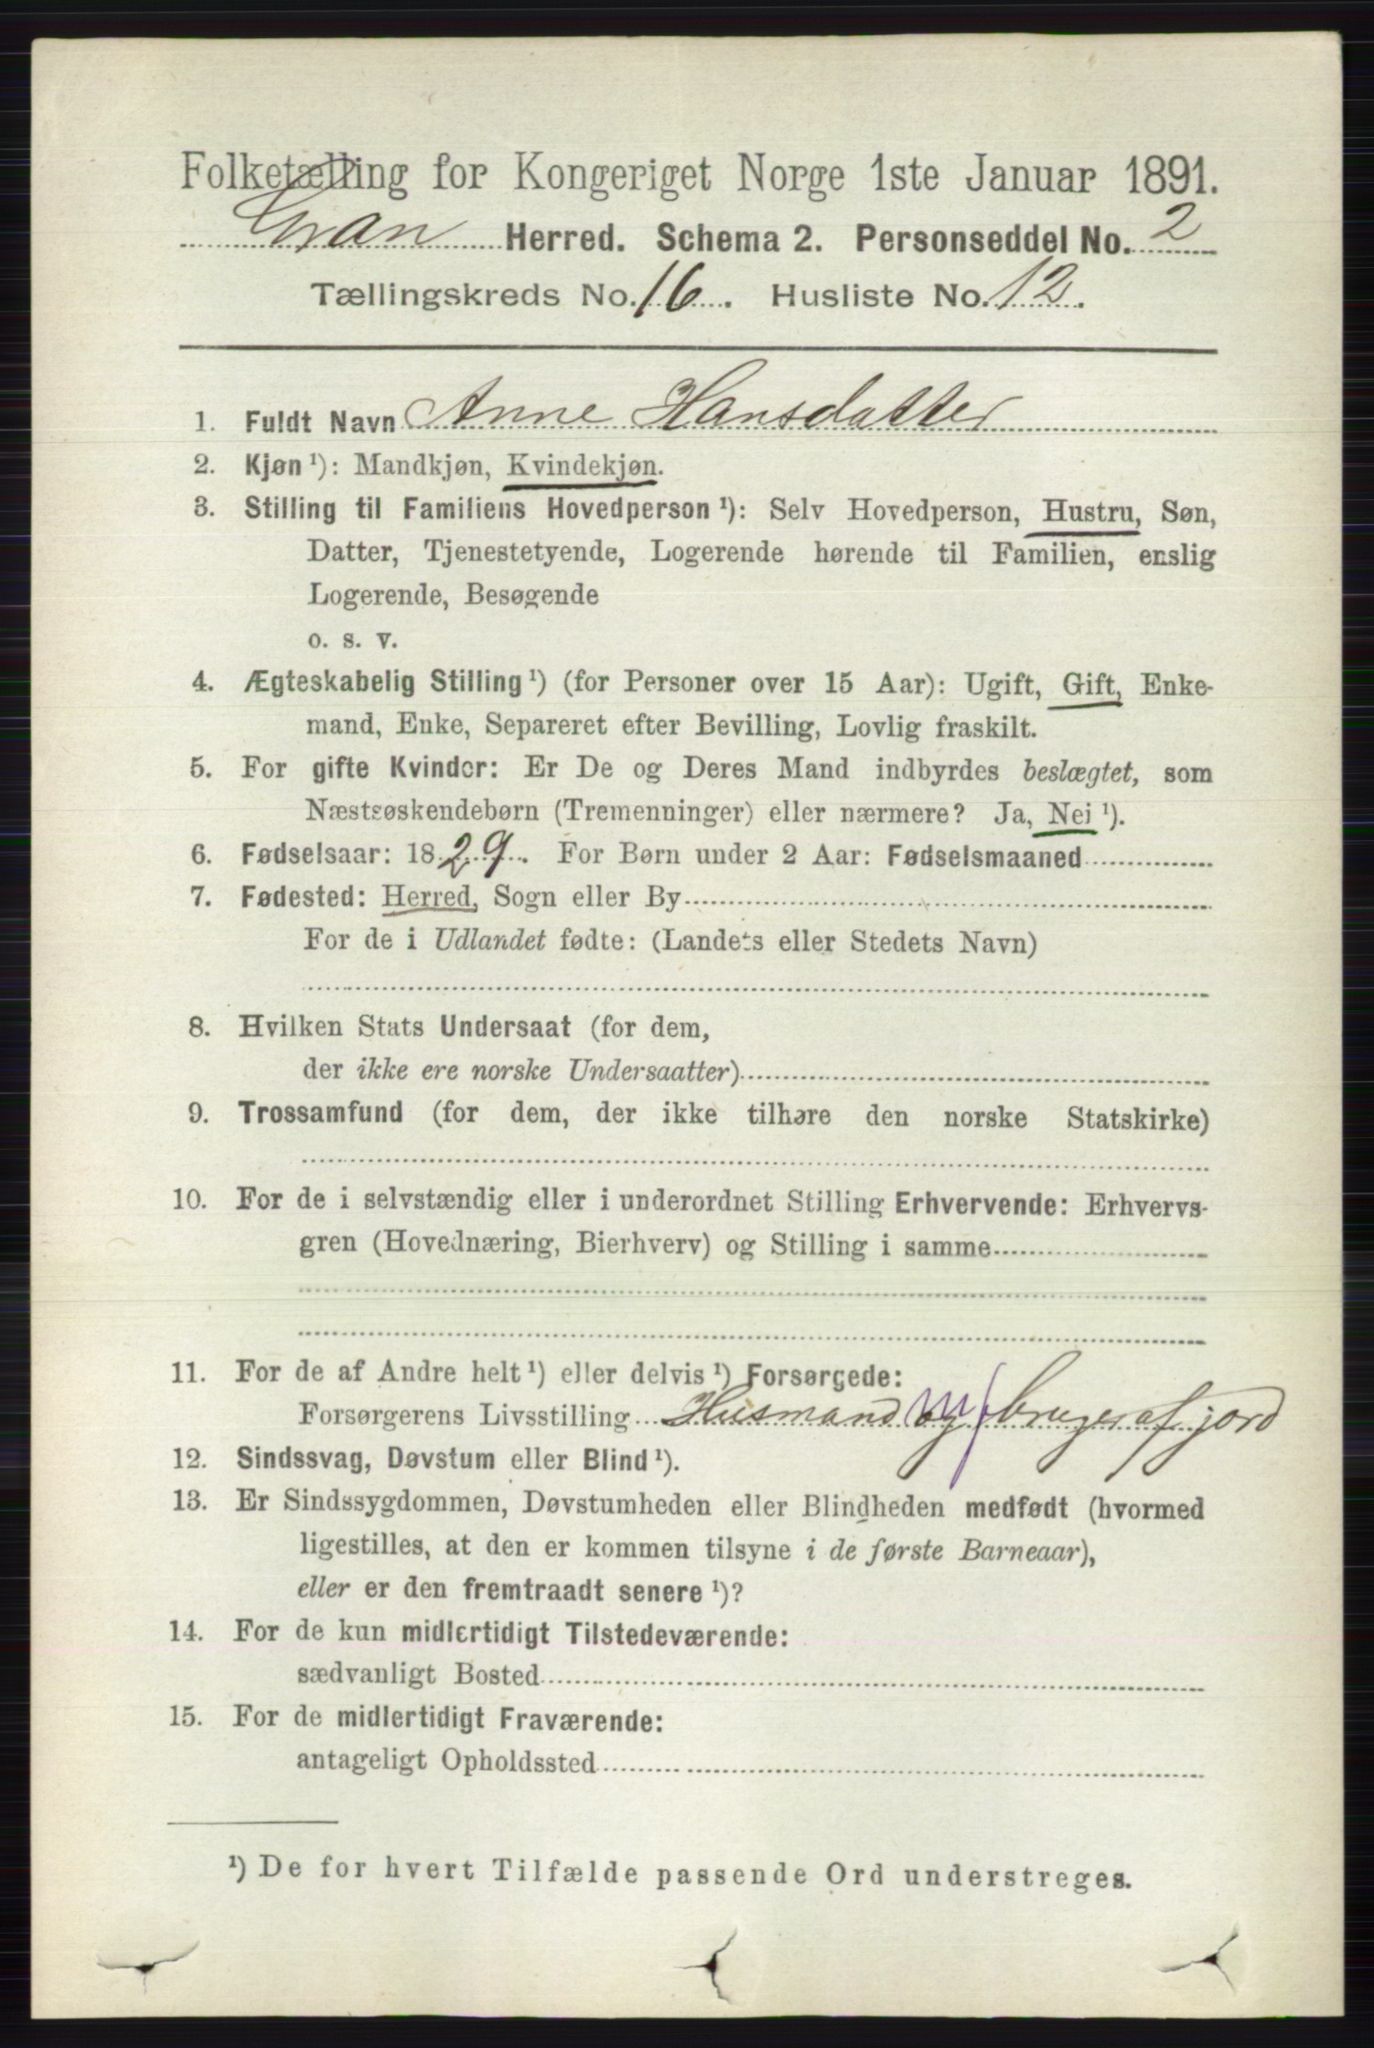 Folketælling for Kongeriget Norge 1ste Januar 1891.
Gran Herred. Schema 2. Personseddel No. 2
Tællingskreds No. 16. Husliste No. 12.
1. Fuldt Navn Anne Hansdatter
2. Kjøn ¹): Mandkjøn, Kvindekjøn.
3. Stilling til Familiens Hovedperson ¹): Selv Hovedperson, Hustru, Søn,
Datter, Tjenestetyende, Logerende hørende til Familien, enslig
Logerende, Besøgende
o. s. v.
4. Ægteskabelig Stilling ¹) (for Personer over 15 Aar): Ugift, Gift, Enke-
mand, Enke, Separeret efter Bevilling, Lovlig fraskilt.
5. For gifte Kvinder: Er De og Deres Mand indbyrdes beslægtet, som
Næstsøskendebørn (Tremenninger) eller nærmere? Ja, Nei ¹).
6. Fødselsaar: 1829. For Børn under 2 Aar: Fødselsmaaned
7. Fødested: Herred, Sogn eller By
For de i Udlandet fødte: (Landets eller Stedets Navn)
8. Hvilken Stats Undersaat (for dem,
der ikke ere norske Undersaatter)
9. Trossamfund (for dem, der ikke tilhøre den norske Statskirke)
10. For de i selvstændig eller i underordnet Stilling Erhvervende: Erhvervs-
gren (Hovednæring, Bierhverv) og Stilling i samme
11. For de af Andre helt ¹) eller delvis ¹) Forsørgede:
Forsørgerens Livsstilling Husmand og m/ bruger af jord
12. Sindssvag, Døvstum eller Blind ¹).
13. Er Sindssygdommen, Døvstumheden eller Blindheden medfødt (hvormed
ligestilles, at den er kommen tilsyne i de første Barneaar),
eller er den fremtraadt senere ¹)?
14. For de kun midlertidigt Tilstedeværende:
sædvanligt Bosted
15. For de midlertidigt Fraværende:
antageligt Opholdssted
¹) De for hvert Tilfælde passende Ord understreges.